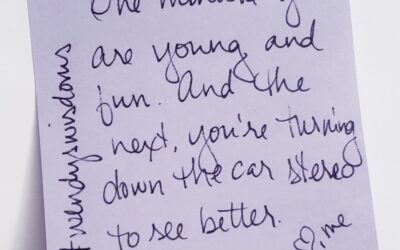 One minute y
are young and
fun. And the
next, you're turning
down the car stereo
to see better.
♡ me
#wendyswisdoms